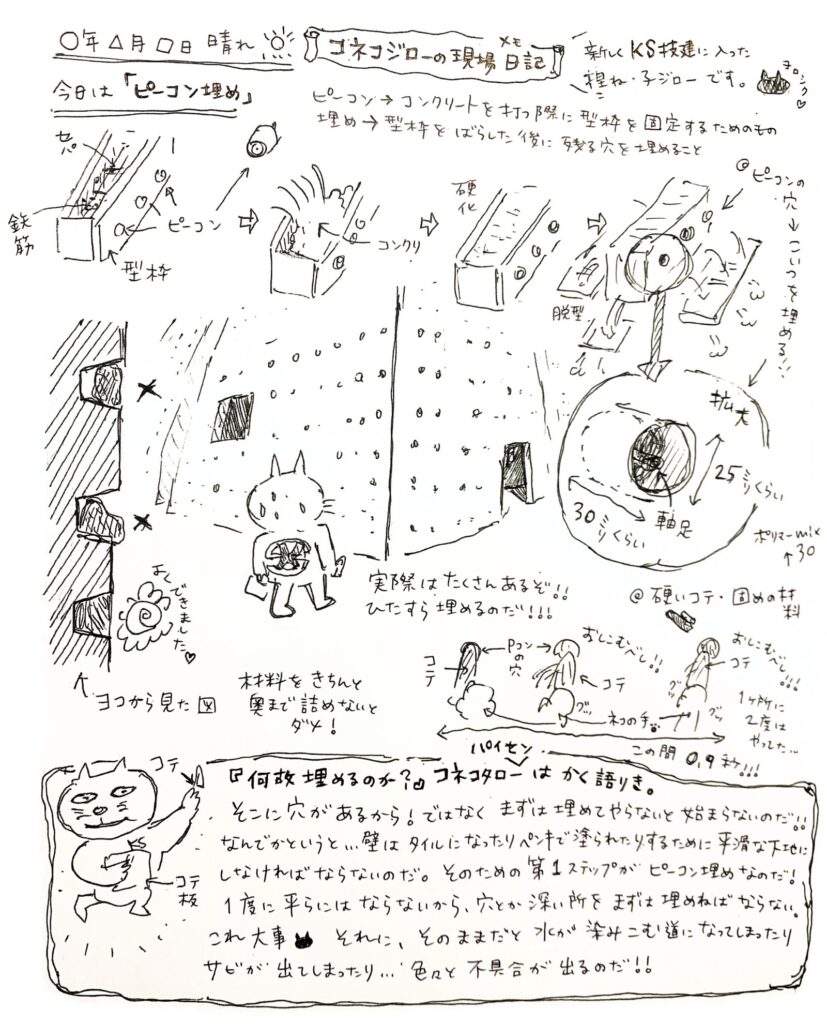 〇年△月□日 晴れ
コネコジローの現場日記
メモ
新しくKS技建に入った
捏ね・子ジローです。
ヨロシク♡
今日は「ピーコン埋め」
ピーコン→コンクリートを打つ際に型枠を固定するためのもの
埋め→型枠をばらした後に残る穴を埋めること
セパ
鉄筋
ピーコン
型枠
コンクリ
硬化
脱型
@ピーコンの穴→こいつを埋める!!
拡大
25ミリくらい
30ミリくらい
軸足
ポリマーmix
↑30
よくできました♡
実際はたくさんあるぞ!!
ひたすら埋めるのだ!!!
@硬いコテ・固めの材料
↑ヨコから見た図
材料をきちんと
奥まで詰めないと
ダメ!
コテ
Pコンの穴
おしこむべし!!
コテ
グッ
ネコの手
おしこむべし!!!
コテ
グッ
1ヶ所に
2度は
やった…
この間 0.9秒!!!
コテ
コテ板
パイセン
『何故埋めるのか?』コネコタローはかく語りき。
そこに穴があるから!ではなくまずは埋めてやらないと始まらないのだ!!
なんでかというと…壁はタイルになったりペンキで塗られたりするために平滑な下地に
しなければならないのだ。そのための第1ステップがピーコン埋めなのだ!
1度に平らにはならないから、穴とか深い所をまずは埋めねばならない。
これ大事 それに、そのままだと水が染みこむ道になってしまったり
サビが出てしまったり…色々と不具合が出るのだ!!